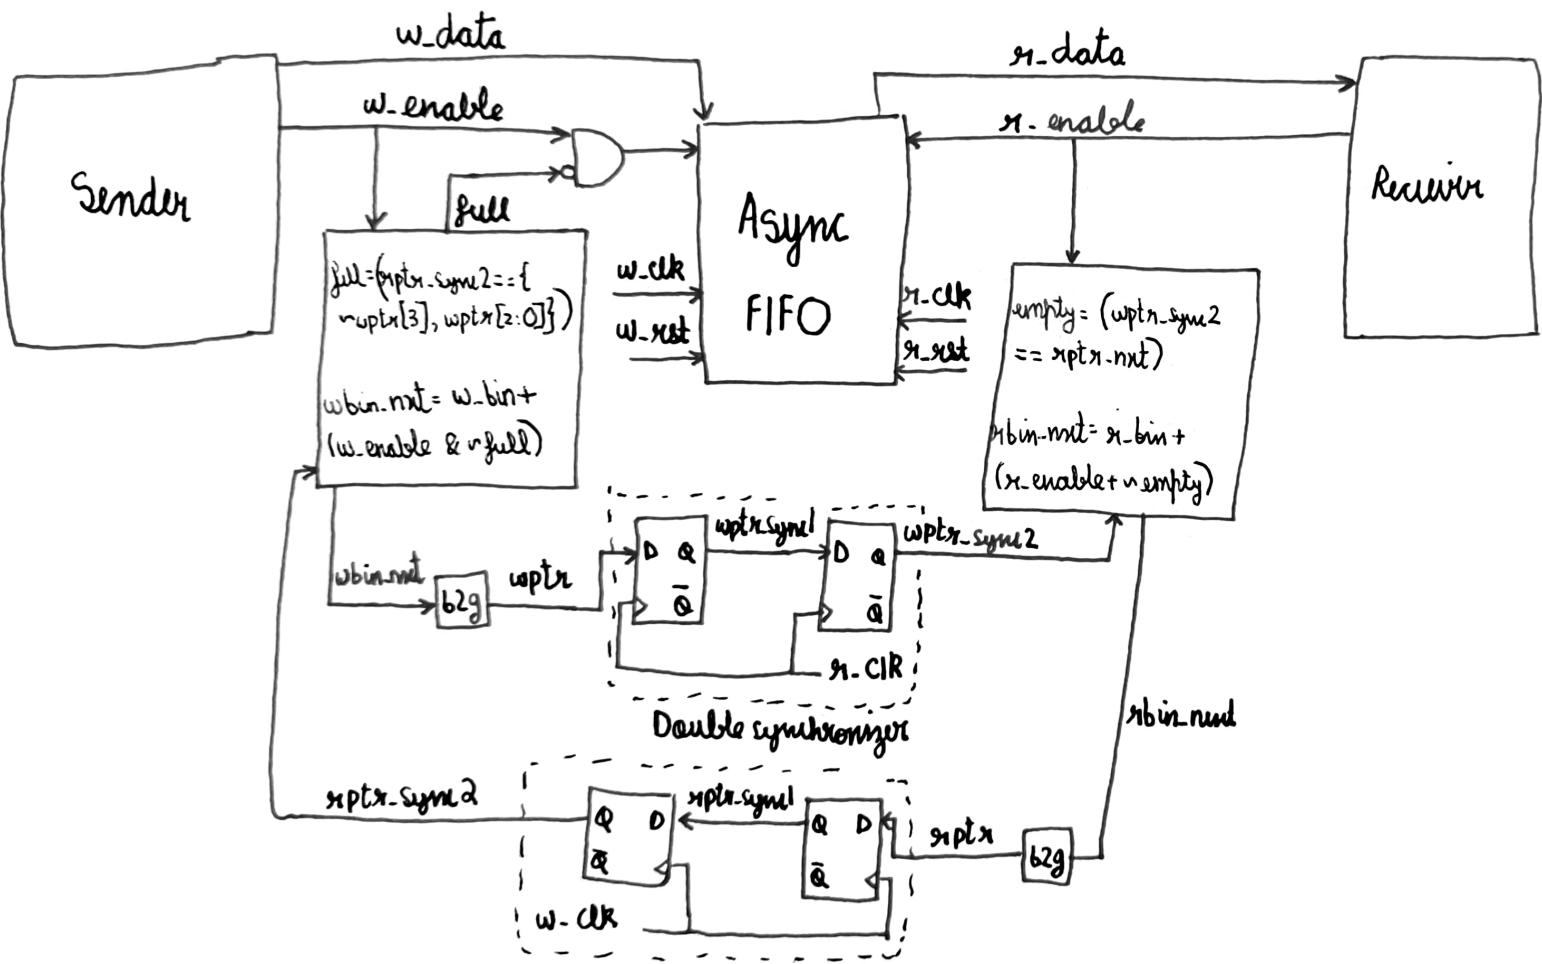 w_data
r_data
w_enable
r_enable
Sender
full
Async
FIFO
Reciever
w_clk
w_rst
r_clk
r_rst
full=(rptr_sync2=={
~wptr[3], wptr[2:0]})
wbin_nxt= w_bin+
(w_enable & ~full)
empty= (wptr_sync2
== rptr_nxt)
rbin_nxt= r_bin+
(r_enable+ ~empty)
wbin_nxt
b2g
wptr
D Q
Q̅
wptr_sync1
D Q
Q̅
wptr_sync2
r_clk
Double synchronizer
rbin_next
rptr_sync2
Q D
Q̅
rptr_sync1
Q D
Q̅
rptr
b2g
w_clk